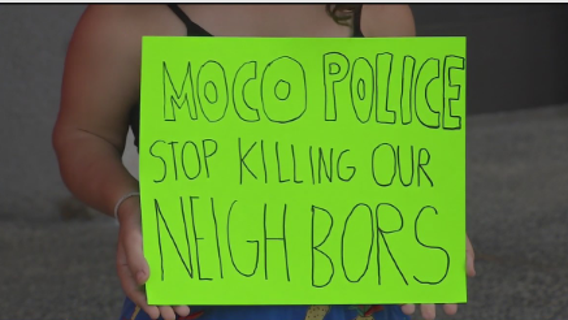 MOCO POLICE
STOP KILLING OUR
NEIGHBORS